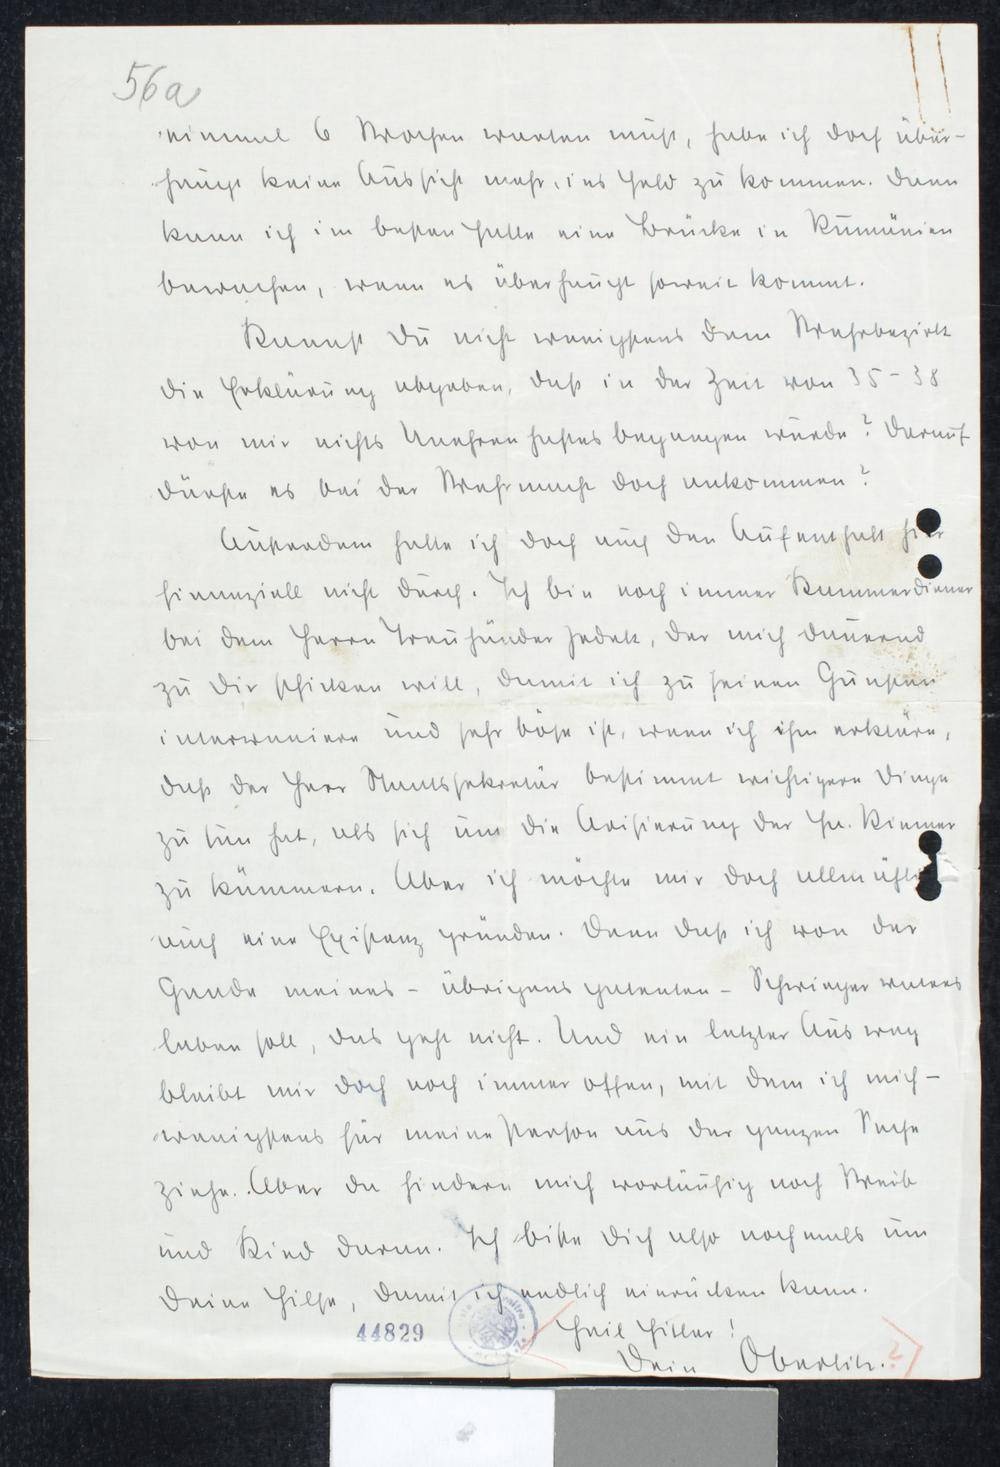 56a
einmal 6 Wochen warten muß, habe ich doch über-
haupt keine Aussicht mehr, ins Feld zu kommen. Dann
kann ich im besten Falle eine Brücke in Rumänien
bewachen, wenn es überhaupt soweit kommt.
Kannst Du nicht wenigstens dem Wehrbezirk
die Erklärung abgeben, daß in der Zeit von 35-38
von mir nichts Unehrenhaftes begangen wurde? Darauf
dürfte es bei der Wehrmacht doch ankommen?
Außerdem halte ich doch auch den Aufenthalt hier
finanziell nicht durch. Ich bin noch immer Kammerdiener
bei dem Herrn Treuhänder, der mich dauernd
zu Dir schicken will, damit ich zu seinen Gunsten
interveniere und sehr böse ist, wenn ich ihm erkläre,
daß der Herr Staatssekretär bestimmt wichtigere Dinge
zu tun hat, als sich um die Arisierung der Fa.
zu kümmern. Aber ich möchte mir doch allmählich
auch eine Existenz gründen. Denn daß ich von der
Gnade meines - übrigens patenten - Schwiegervaters
leben soll, das geht nicht. Und ein letzter Ausweg
bleibt mir doch noch immer offen, mit dem ich mich -
wenigstens für meine Person aus der ganzen Sache
ziehe. Aber da hindern mich vorläufig noch Weib
und Kind daran. Ich bitte Dich also nochmals um
Deine Hilfe, damit ich endlich einrücken kann.
44829
Heil Hitler!
Dein
?